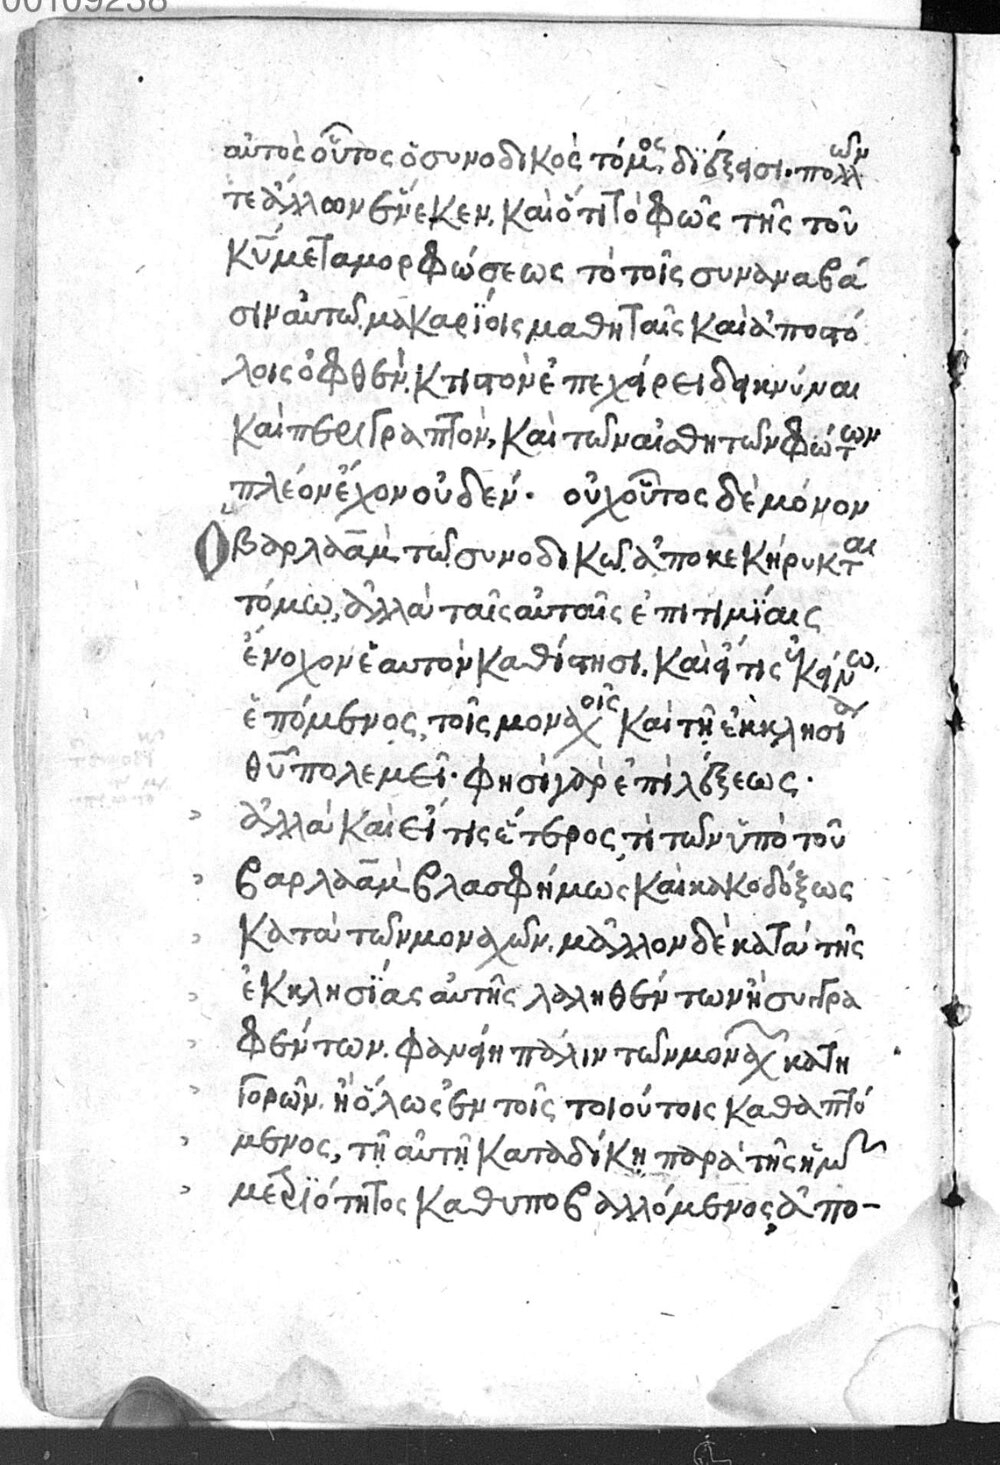 00109238
αὐτὸς οὗτος ὁ συνοδικὸς τόμος, διέξεισι· πολλῶν
τε ἄλλων ἕνεκεν, καὶ ὅτι τὸ φῶς τῆς τοῦ
κυ μεταμορφώσεως τὸ τοῖς συναναβᾶ
σιν αὐτῶ μακαρίοις μαθηταῖς καὶ ἀποστό
λοις ὀφθὲν, κτιστὸν ἐπεχείρει δεικνύναι
καὶ περιγραπτὸν, καὶ τῶν αἰσθητῶν φώτων
πλέον ἔχον οὐδέν· οὐχ οὗτος δὲ μόνον
ὁ βαρλαὰμ τῶ συνοδικῶ ἀποκεκήρυκται
τόμω, ἀλλὰ ταῖς αὐταῖς ἐπιτιμίαις
ἔνοχον ἑαυτὸν καθίστησι, καὶ εἴ τις ἐκείνω
ἑπόμενος, τοῖς μοναχοῖς καὶ τῆ ἐκκλησία
θυ πολεμεῖ· φησὶ γὰρ ἐπὶ λέξεως·
ἀλλὰ καὶ εἴ τις ἕτερος, τὶ τῶν ὑπὸ τοῦ
βαρλαὰμ βλασφήμως καὶ κακοδόξως
κατὰ τῶν μοναχῶν, μᾶλλον δὲ κατὰ τῆς
ἐκκλησίας αὐτῆς λαληθέντων ἢ συγγρα
φέντων, φανείη πάλιν τῶν μοναχῶν κατη
γορῶν, ἢ ὅλως ἐν τοῖς τοιούτοις καθαπτό
μενος, τῆ αὐτῆ καταδίκη παρὰ τῆς ἡμῶν
μετριότητος καθυποβαλλόμενος, ἀπο-